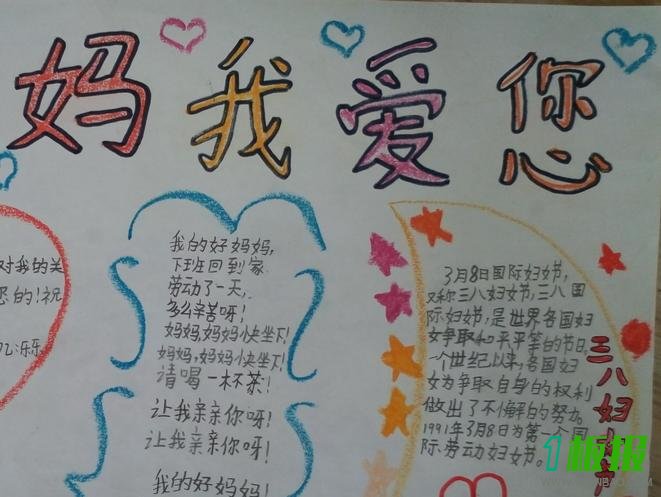 妈我爱您
对我的关
您的!祝
我的好妈妈,
下班回到家
劳动了一天,
多么辛苦呀!
妈妈,妈妈快坐下!
妈妈,妈妈快坐下!
请喝一杯茶!
让我亲亲你呀!
让我亲亲你呀!
我的好妈妈!
3月8日国际妇女节,
又称三八妇女节,三八国
际妇女节,是世界各国妇
女争取和平平等的节日,
一个世纪以来,各国妇
女为争取自身的权利
做出了不懈的努力。
1991年3月8日为第一个国
际劳动妇女节。
三八妇女
1板报